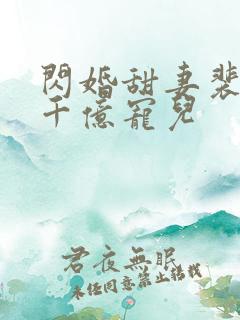 閃婚甜妻裴
千億寵兒
君夜無眠
未經同意禁止轉載